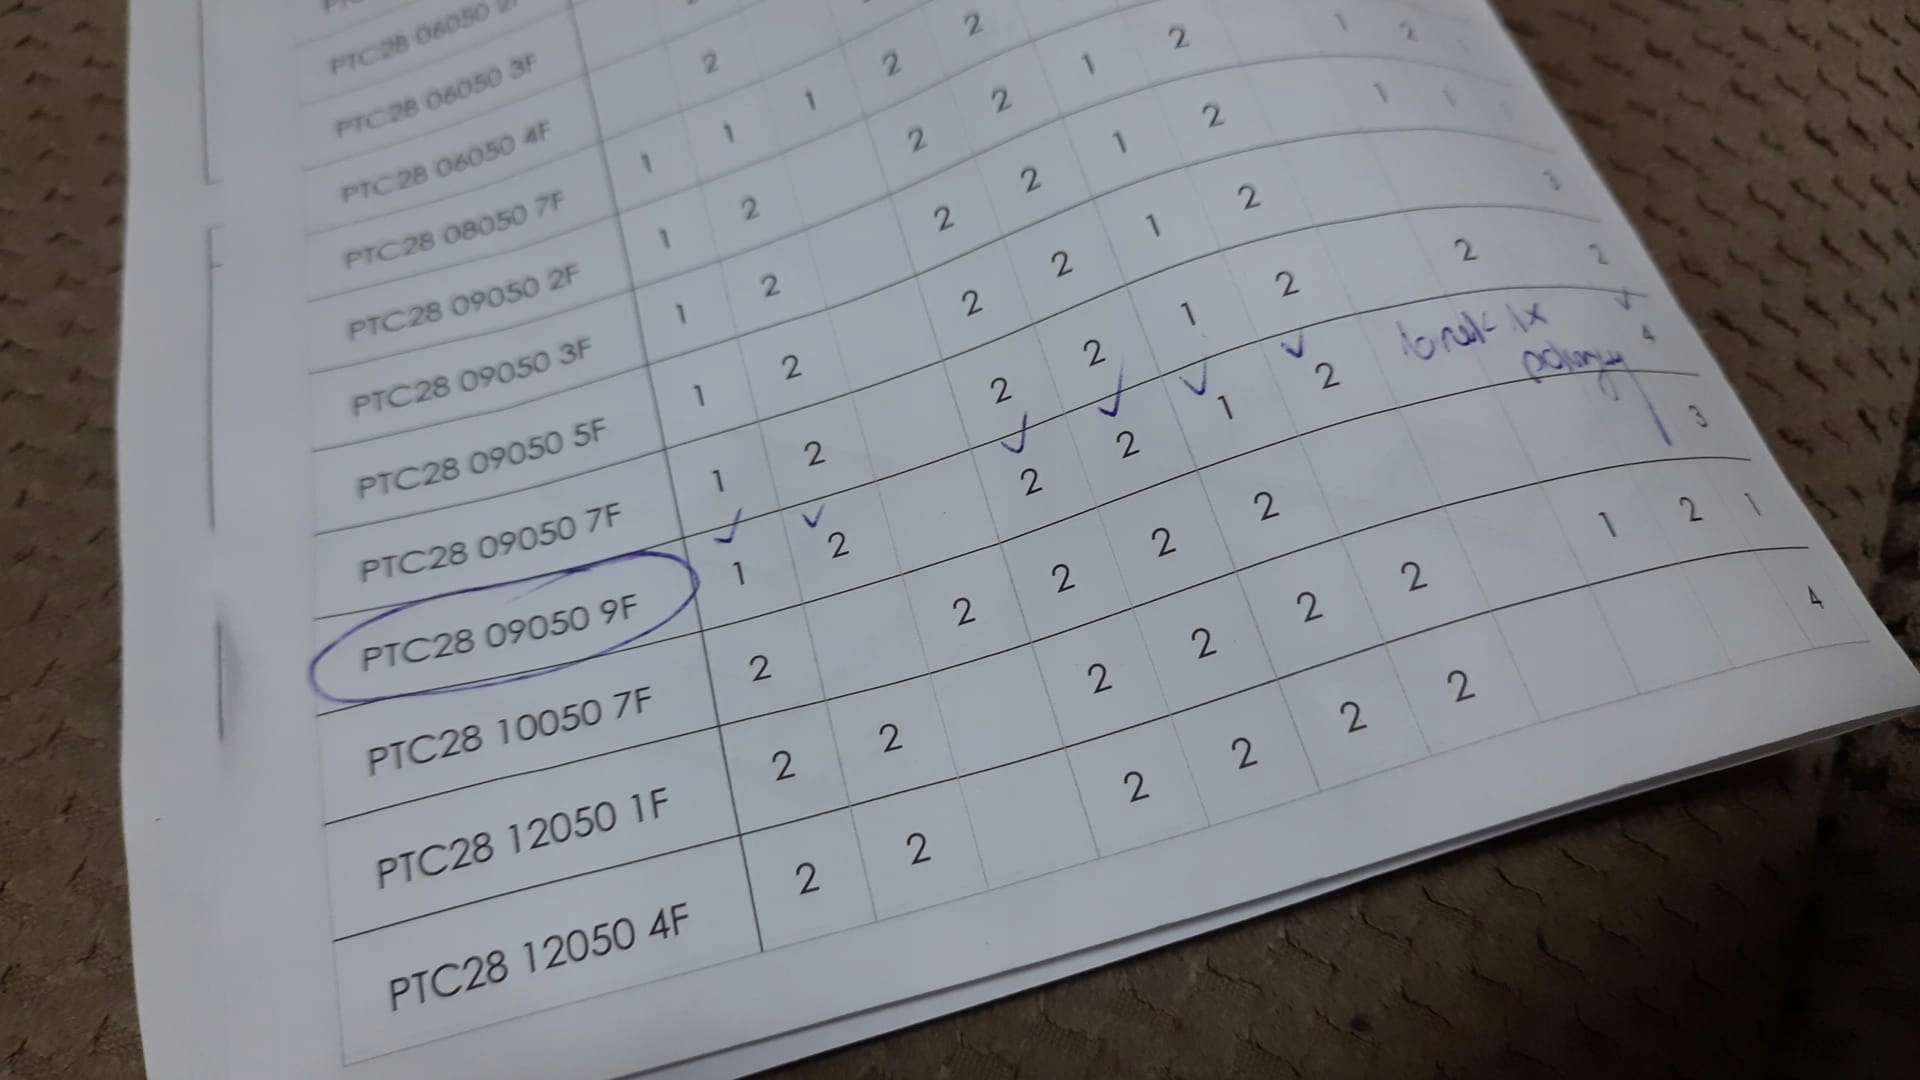 PTC28 06050 2F
PTC28 06050 3F
PTC28 06050 4F 2
PTC28 08050 7F 1 1 1 2 2
PTC28 09050 2F 1 2 2 2 1 2 1 2 1
PTC28 09050 3F 1 2 2 2 1 2 1 1 1
PTC28 09050 5F 1 2 2 2 1 2 3
PTC28 09050 7F 1 2 2 2 1 2 2 2
brak 1x
PTC28 09050 9F 1 2 2 2 1 2 4
PTC28 10050 7F 2 2 2 2 2 3
PTC28 12050 1F 2 2 2 2 2 2 1 2 1
PTC28 12050 4F 2 2 2 2 2 2 4